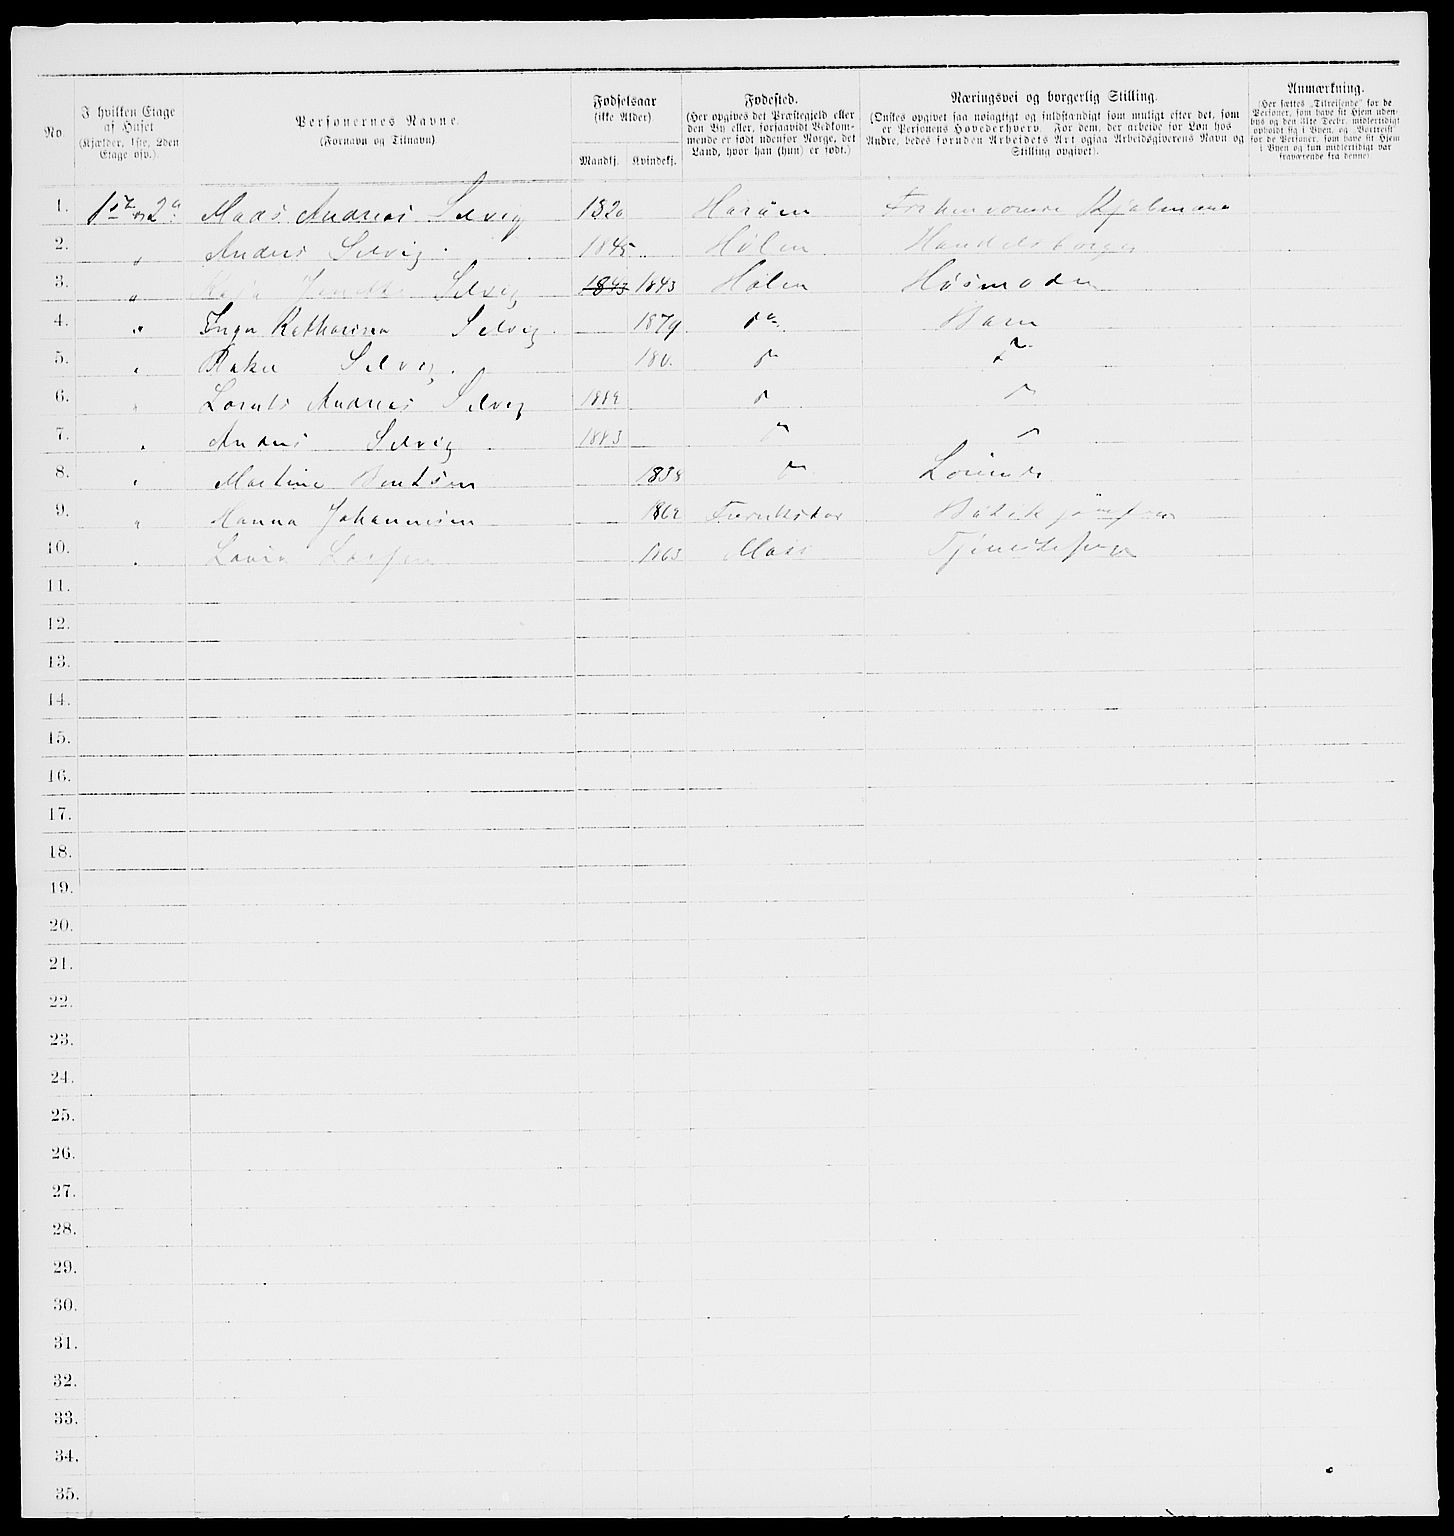 No.
I hvilken Etage af Huset (Kjælder, 1ste, 2den Etage osv.).
Personernes Navne. (Fornavn og Tilnavn)
Fødselsaar (ikke Alder) Mandkj. Kvindekj.
Fødested. (Her opgives det Præstegjeld eller den By eller, forsaavidt Vedkommende er født udenfor Norge, det Land, hvor han (hun) er født.)
Næringsvei og borgerlig Stilling. (Ønskes opgivet saa nøiagtigt og fuldstændigt som muligt efter det, som er Personens Hovederhverv. For dem, der arbeide for Løn hos Andre, bedes foruden Arbeidets Art ogsaa Arbeidsgiverens Navn og Stilling opgivet).
Anmærkning. (Her sættes „Tilreisende" for de Personer, som have sit Hjem udenbys og den 31te Decbr. midlertidigt opholdt sig i Byen, og „Bortreist" for de Personer, som have sit Hjem i Byen og kun midlertidigt var fraværende fra denne)
1. 1ste og 2a Mads Andreas Selvig 1820 Forhenværende
2. " Anders Selvig 1845 Hølen Handelsborger
3. " Selvig 1843 1843 Hølen Husmoder
4. " Inga Katharina Selvig 1879 do Barn
5. " Selvig do do
6. " Andreas Selvig do do
7. " Anders Selvig 1883 do do
8. " Martine Bentsen do
9. " Johannesen
10. " Moss Tjenestepige
11.
12.
13.
14.
15.
16.
17.
18.
19.
20.
21.
22.
23.
24.
25.
26.
27.
28.
29.
30.
31.
32.
33.
34.
35.